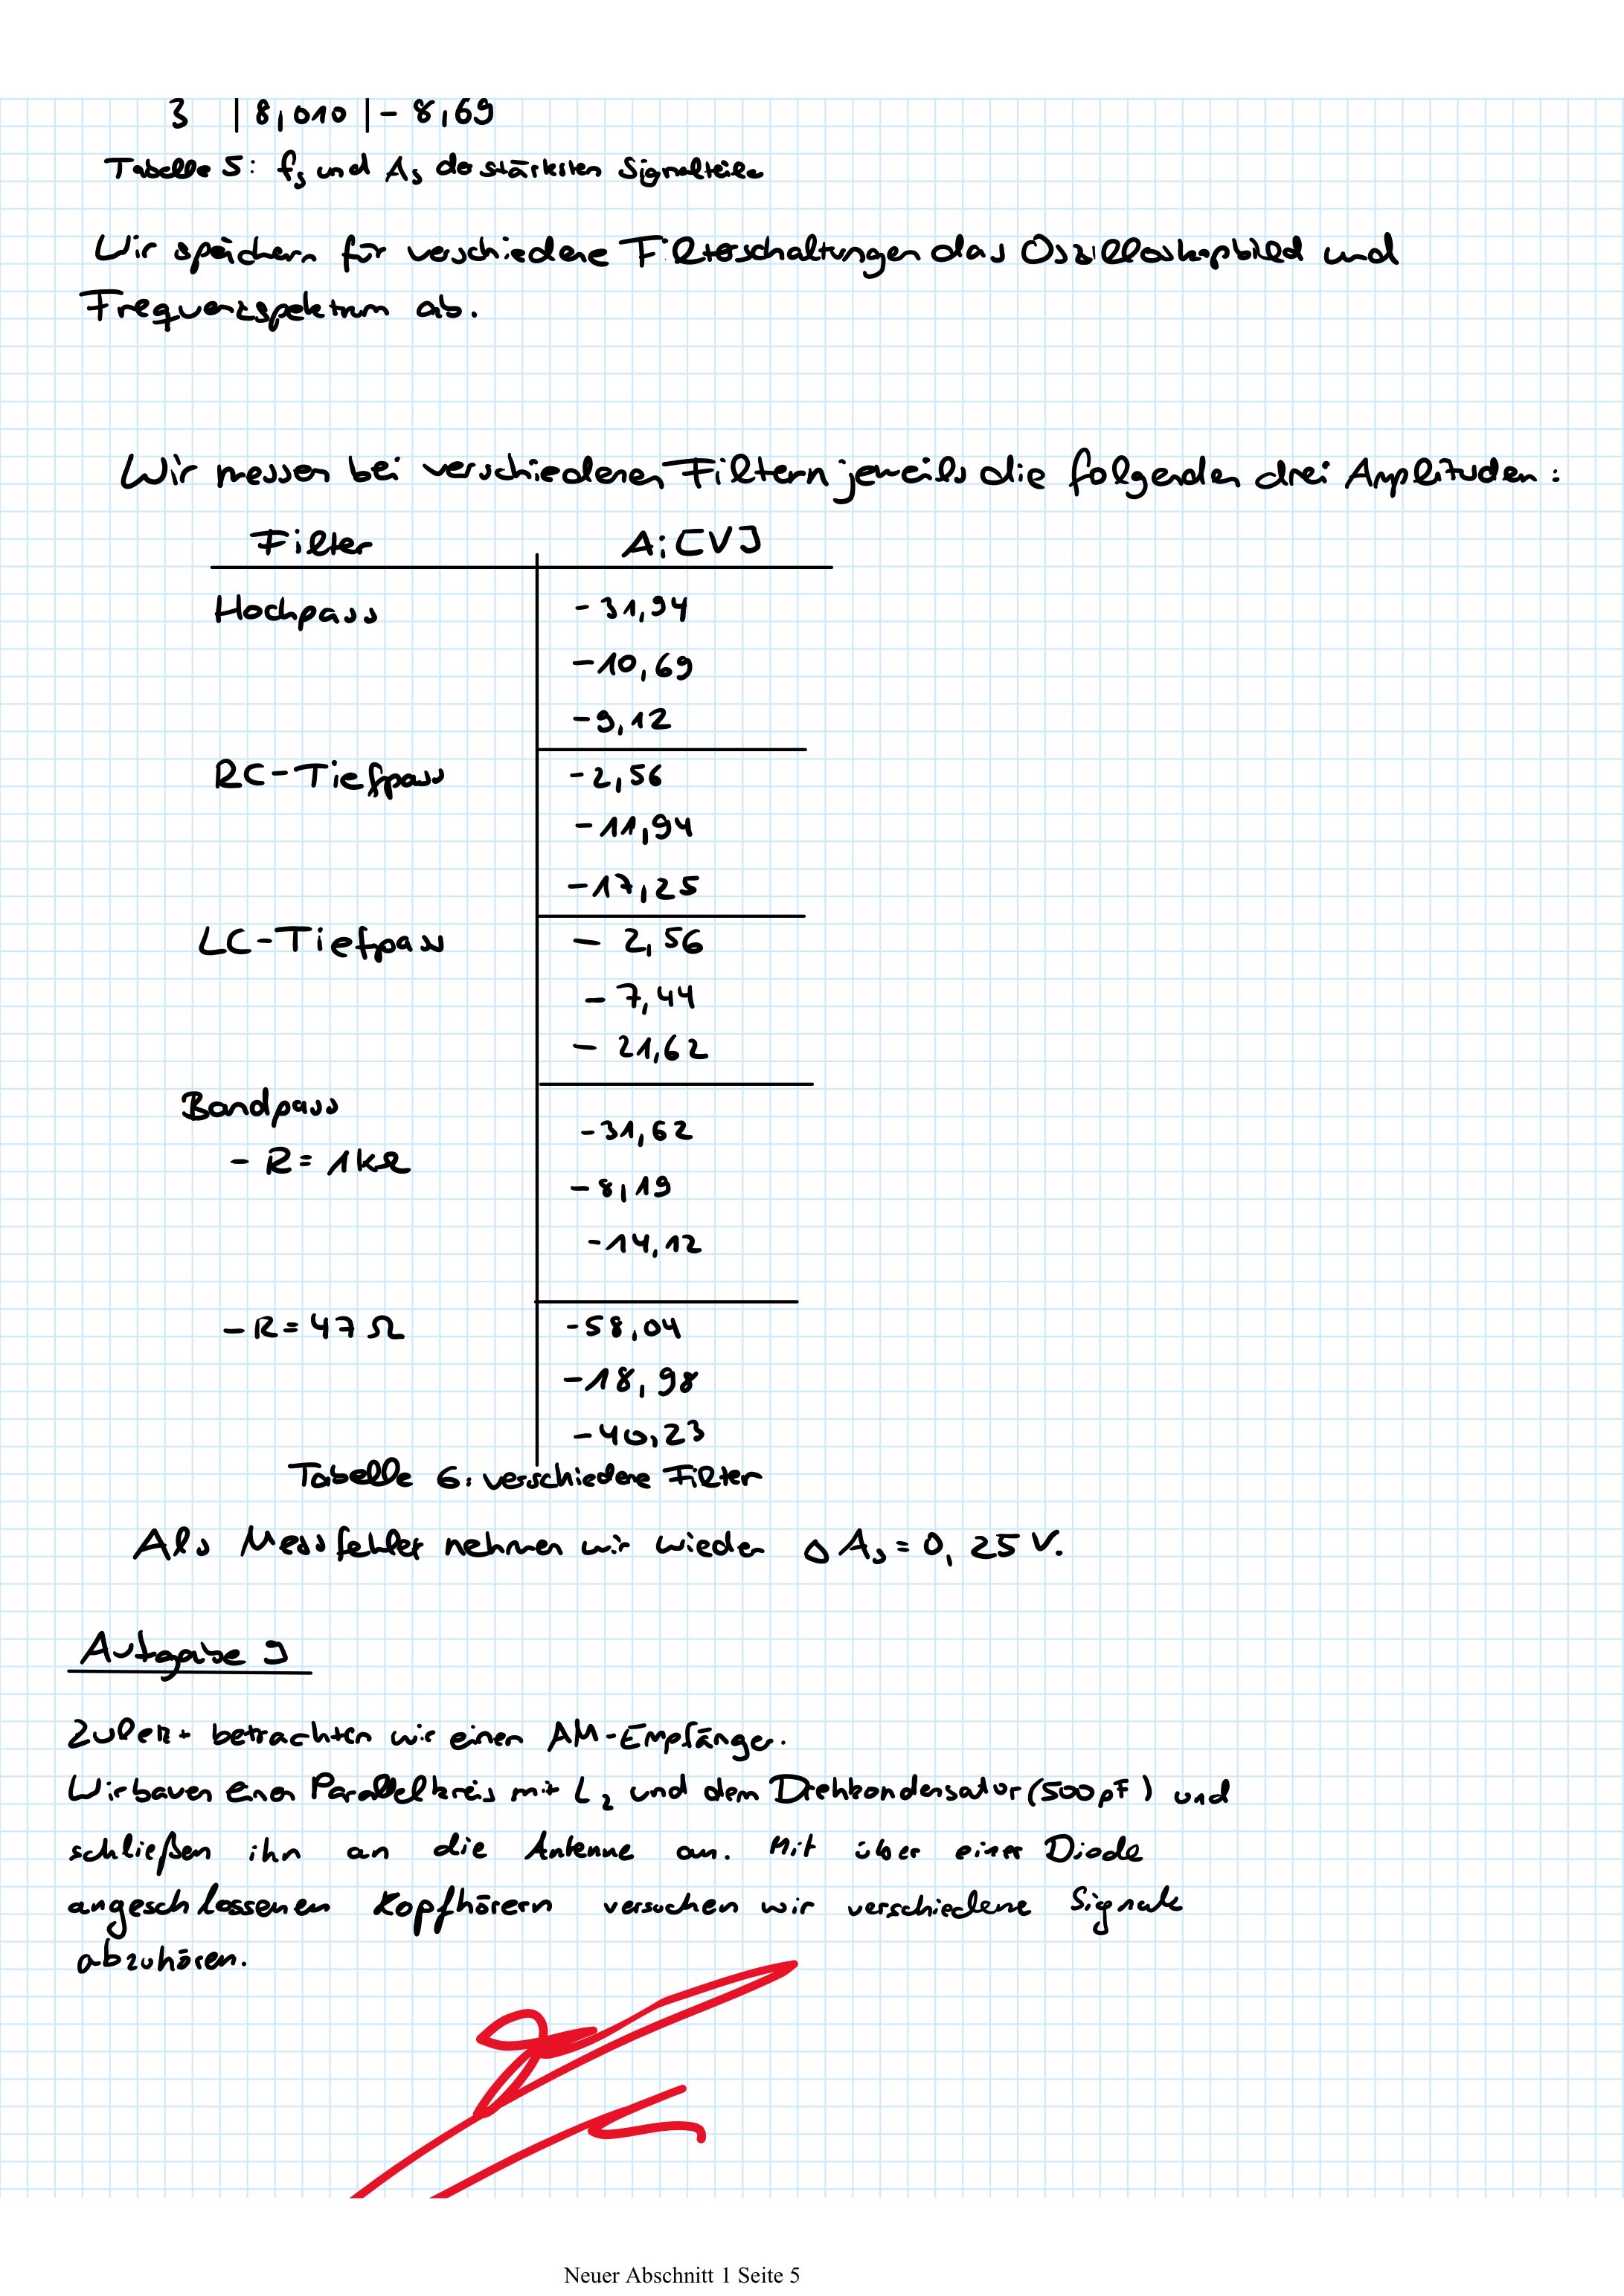 3 | 8,010 | - 8,69
Tabelle 5: fs und As der stärksten Signalteile
Wir speichern für verschiedene Filterschaltungen das Oszilloskopbild und
Frequenzspektrum ab.
Wir messen bei verschiedenen Filtern jeweils die folgenden drei Amplituden:
Filter Ai [V]
Hochpass -31,94
-10,69
-9,12
RC-Tiefpass -2,56
-11,94
-17,25
LC-Tiefpass - 2,56
- 7,44
- 21,62
Bandpass
-31,62
- R = 1kΩ
-8,19
-14,12
- R = 47 Ω -58,04
-18,98
-40,23
Tabelle 6: verschiedene Filter
Als Messfehler nehmen wir wieder Δ As = 0,25 V.
Aufgabe 9
Zuletzt betrachten wir einen AM-Empfänger.
Wir bauen einen Parallelkreis mit L2 und dem Drehkondensator (500pF) und
schließen ihn an die Antenne an. Mit über einer Diode
angeschlossenen Kopfhörern versuchen wir verschiedene Signale
abzuhören.
Neuer Abschnitt 1 Seite 5